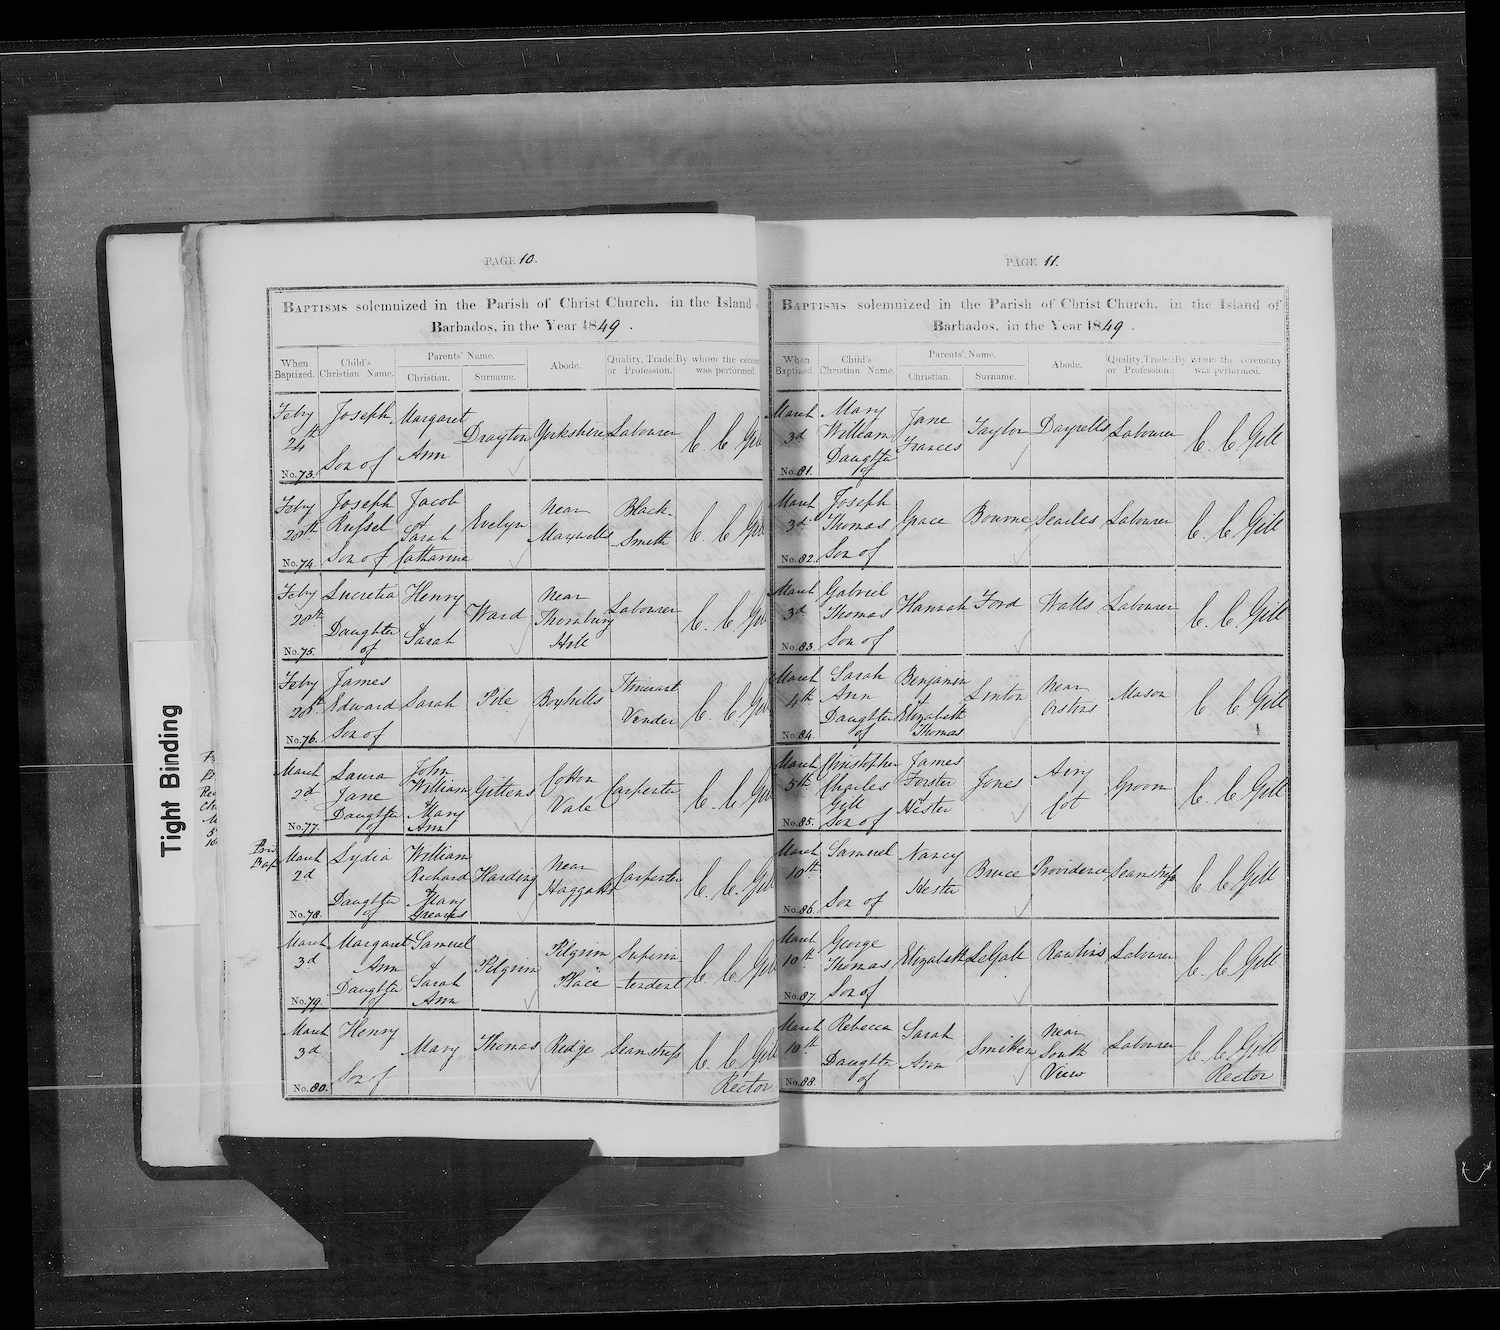 Tight Binding
PAGE 10.
BAPTISMS solemnized in the Parish of Christ Church, in the Island
Barbados, in the Year 1849.
When Baptized.
Child's Christian Name.
Parents' Name.
Christian.
Surname.
Abode.
Quality, Trade or Profession.
By whom the cere
was performed
Feby 24th
No. 73.
Joseph
Son of
Margaret
Ann
Drayton
Yorkshire
Labourer
C. C. Gill
Feby 28th
No. 74
Joseph
Russel
Son of
Jacob
&
Sarah
Catharine
Evelyn
Near
Maxwells
Black-
Smith
C. C. Gill
Feby 28th
No. 75.
Lucretia
Daughter
of
Henry
&
Sarah
Ward
Near
Thornbury
Hill
Labourer
C. C. Gill
Feby 28th
No. 76.
James
Edward
Son of
Sarah
Pile
Boyhills
Vender
C. C. Gill
March
2d
No. 77.
Laura
Jane
Daughter
of
John
William
&
Mary
Ann
Gittens
Cotton
Vale
Carpenter
C. C. Gill
March
2d
No. 78.
Lydia
Daughter
of
William
Richard
&
Mary
Greaves
Harding
Near
Haggatts
Carpenter
C. C. Gill
March
3d
No. 79.
Margaret
Ann
Daughter
of
Samuel
&
Sarah
Ann
Pilgrim
Pilgrim
Place
Superin
-tendent
C. C. Gill
March
3d
No. 80.
Henry
Son of
Mary
Thomas
Ridge
Seamstress
C. C. Gill
Rector
PAGE 11.
BAPTISMS solemnized in the Parish of Christ Church, in the Island of
Barbados, in the Year 1849.
When Baptized
Child's Christian Name.
Parents' Name.
Christian.
Surname.
Abode.
Quality, Trade or Profession.
By whom the ceremony
was performed.
March
3d
No. 81.
Mary
William
Daughter
of
Jane
Frances
Taylor
Dayrells
Labourer
C. C. Gill
March
3d
No. 82.
Joseph
Thomas
Son of
Grace
Bourne
Searles
Labourer
C. C. Gill
March
3d
No. 83.
Gabriel
Thomas
Son of
Hannah
Ford
Walls
Labourer
C. C. Gill
March
4th
No. 84.
Sarah
Ann
Daughter
of
Benjamin
&
Elizabeth
Thomas
Linton
Near
Mason
C. C. Gill
March
5th
No. 85.
Christopher
Charles
Gill
Son of
James
Forster
&
Hester
Jones
Airy
Cot
Groom
C. C. Gill
March
10th
No. 86.
Samuel
Son of
Nancy
Hester
Bruce
Providence
Seamstress
C. C. Gill
March
10th
No. 87
George
Thomas
Son of
Elizabeth
LeGall
Rawlins
Labourer
C. C. Gill
March
10th
No. 88.
Rebecca
Daughter
of
Sarah
Ann
Smitten
Near
South
View
Labourer
C. C. Gill
Rector